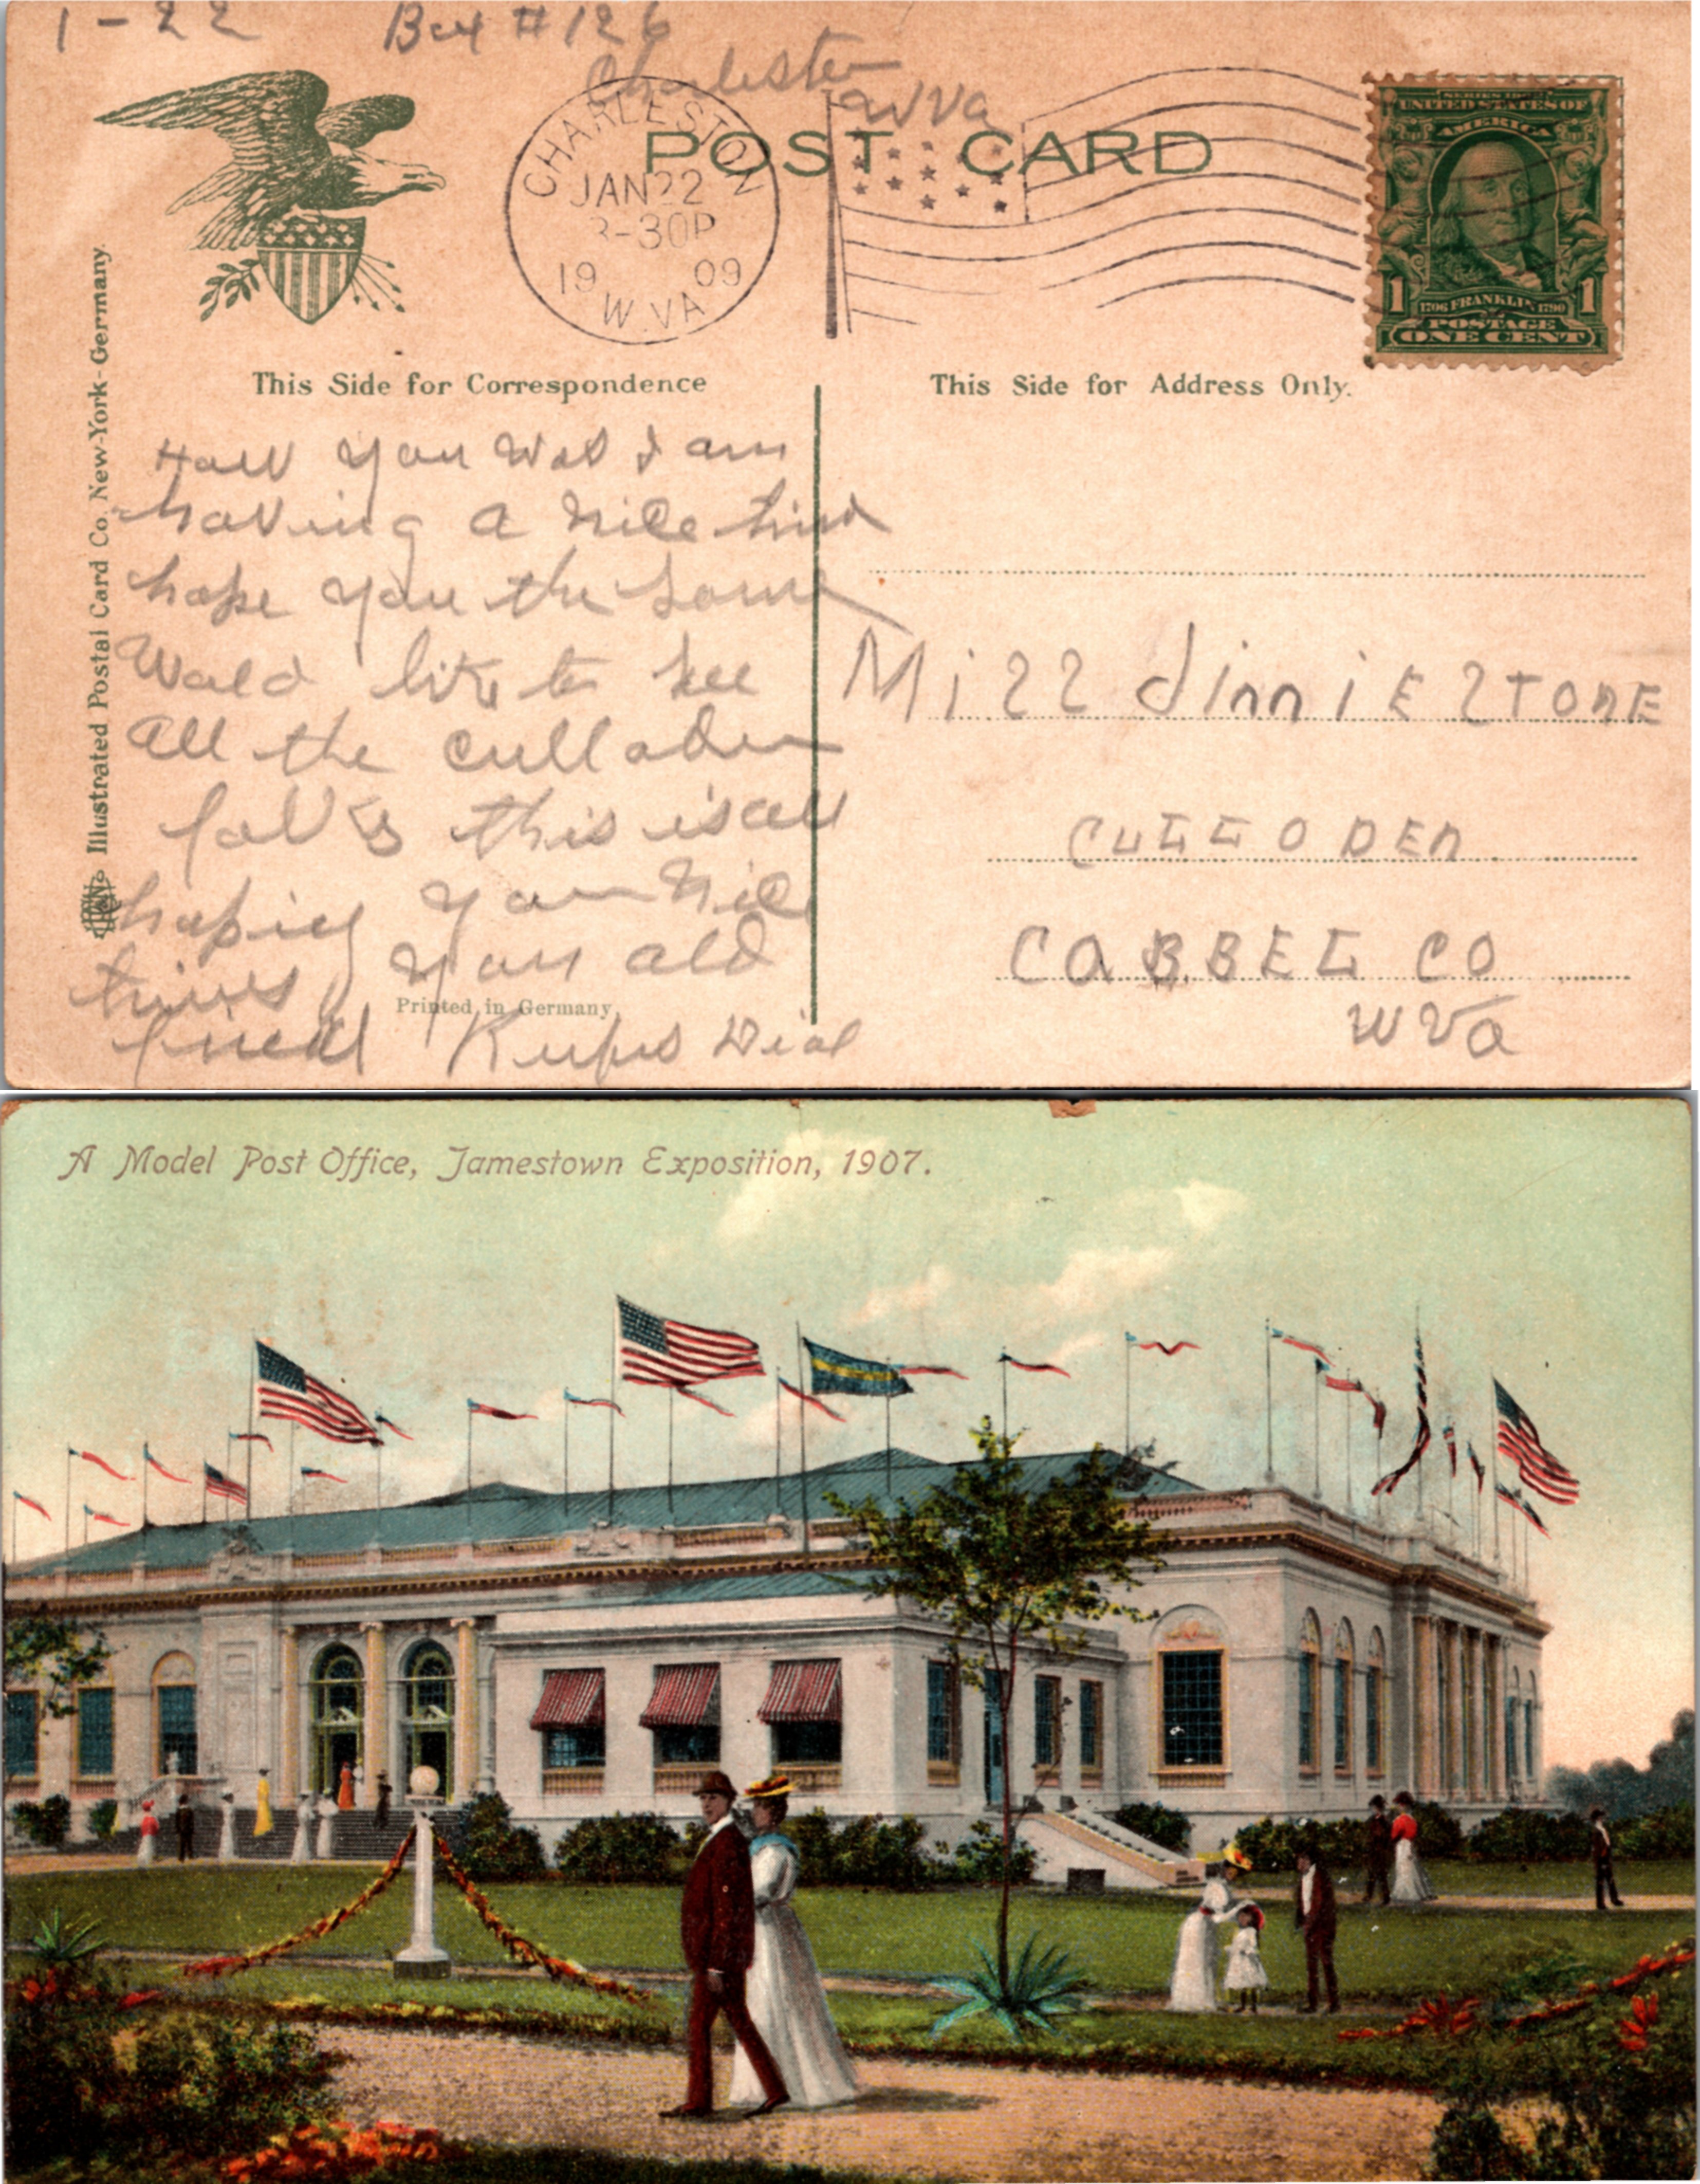 1-22 Box #126
Charleston
WVa
POST CARD
CHARLESTON
JAN 22
3-30P
19 09
W.VA
SERIES 1902
UNITED STATES OF
AMERICA
1 1706 FRANKLIN 1790 1
POSTAGE
ONE CENT
This Side for Correspondence
This Side for Address Only.
Illustrated Postal Card Co. New-York-Germany.
How you was I am
having a nice time
hope you the same
Wold like to see
all the culloden
folks this is all
hoping you nice
times your old
friend Rufus Dial
Printed in Germany
Miss Linnie Stone
CULLODEN
CABBEL CO
WVa
A Model Post Office, Jamestown Exposition, 1907.